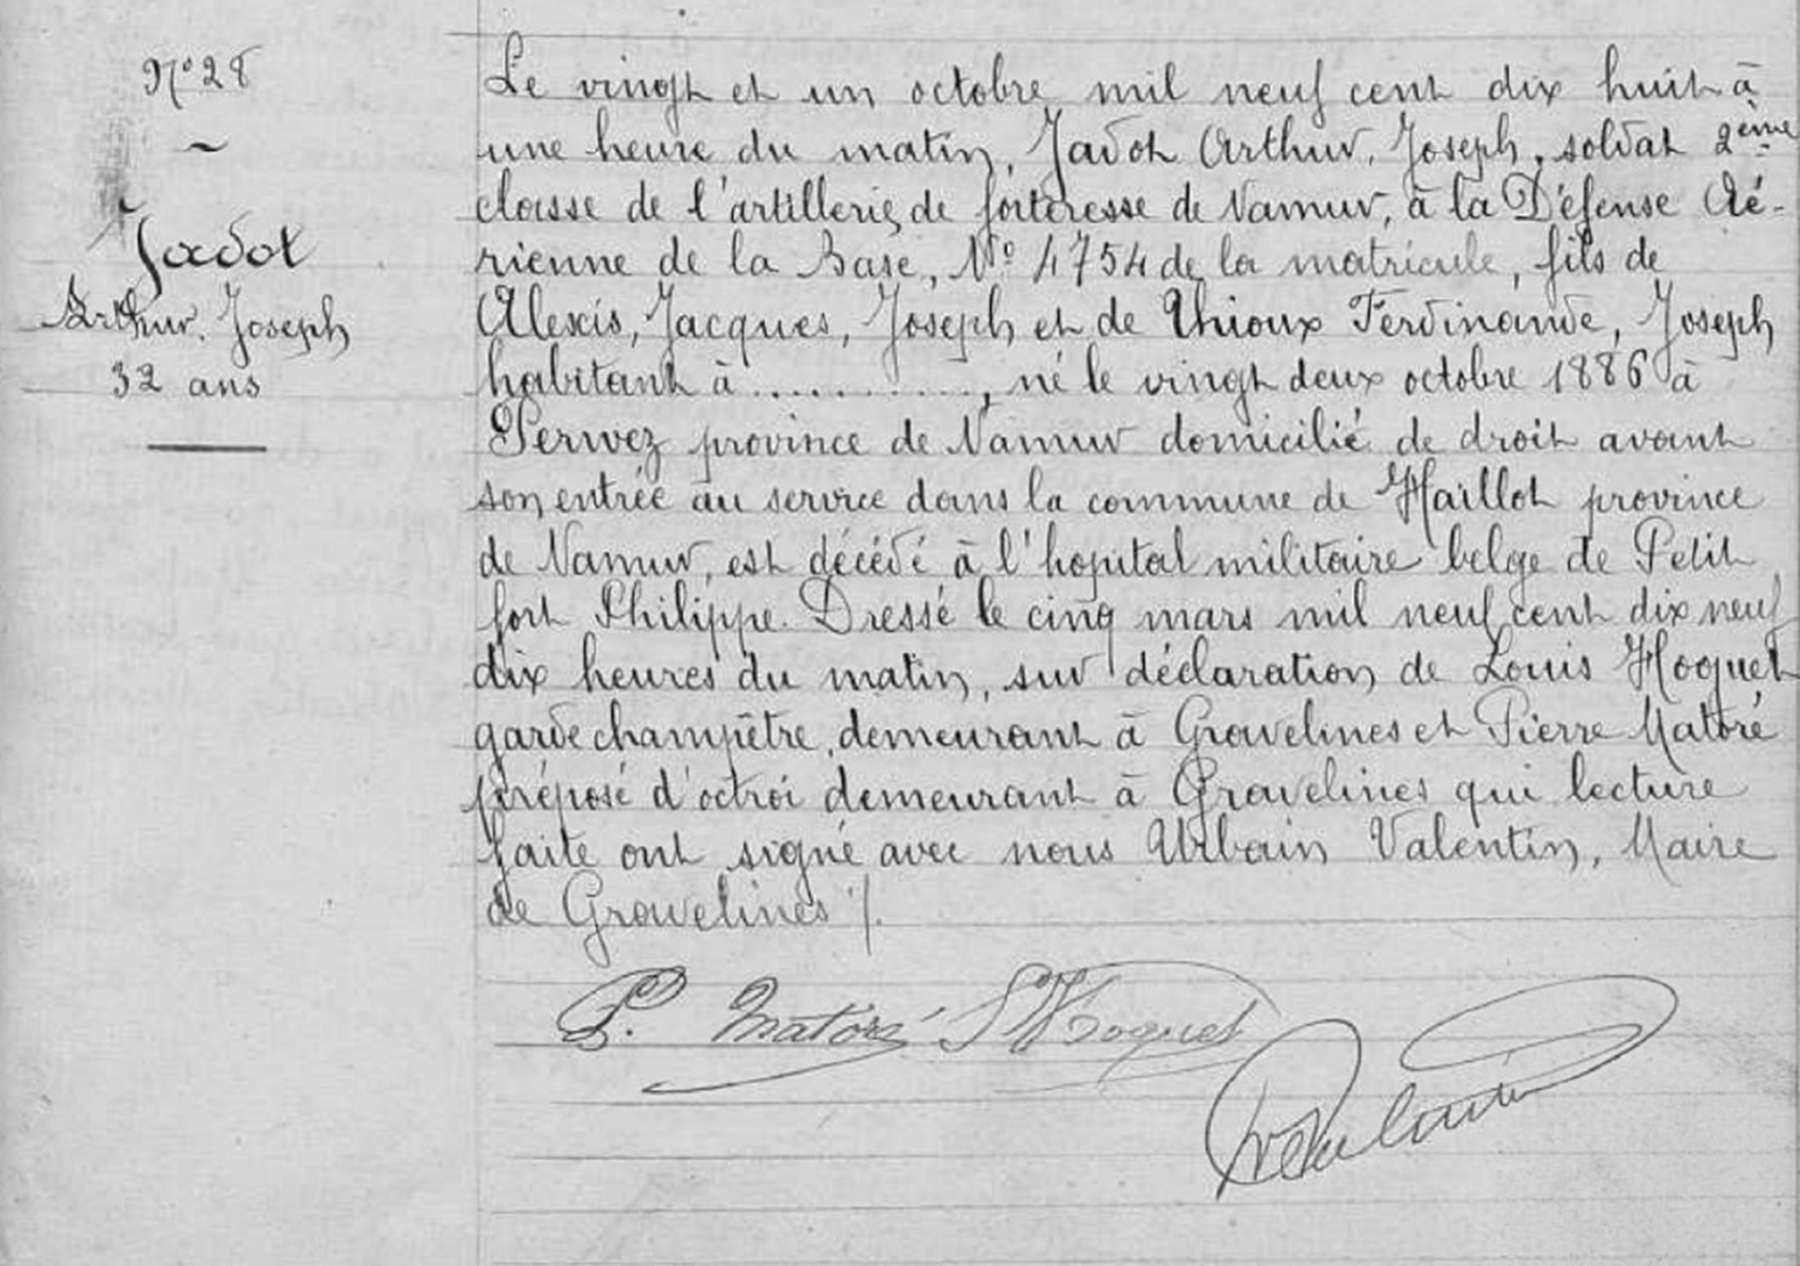 N° 28
Jadot
Arthur, Joseph
32 ans
Le vingt et un octobre mil neuf cent dix huit à
une heure du matin, Jadot Arthur, Joseph, soldat 2ème
classe de l'artillerie, de forteresse de Namur, à la Défense Aé-
rienne de la Base, N° 4754 de la matricule, fils de
Alexis, Jacques, Joseph et de Thioux Ferdinande, Joseph
habitant à ............, né le vingt deux octobre 1886 à
Perwez province de Namur domicilié de droit avant
son entrée au service dans la commune de Haillot province
de Namur, est décédé à l'hopital militaire belge de Petit
fort Philippe. Dressé le cinq mars mil neuf cent dix neuf
dix heures du matin, sur déclaration de Louis Hoquet
garde champêtre, demeurant à Gravelines et Pierre Matoré
préposé d'octroi demeurant à Gravelines qui lecture
faite ont signé avec nous Urbain Valentin, Maire
de Gravelines ./.
P. Matoré Hoquet